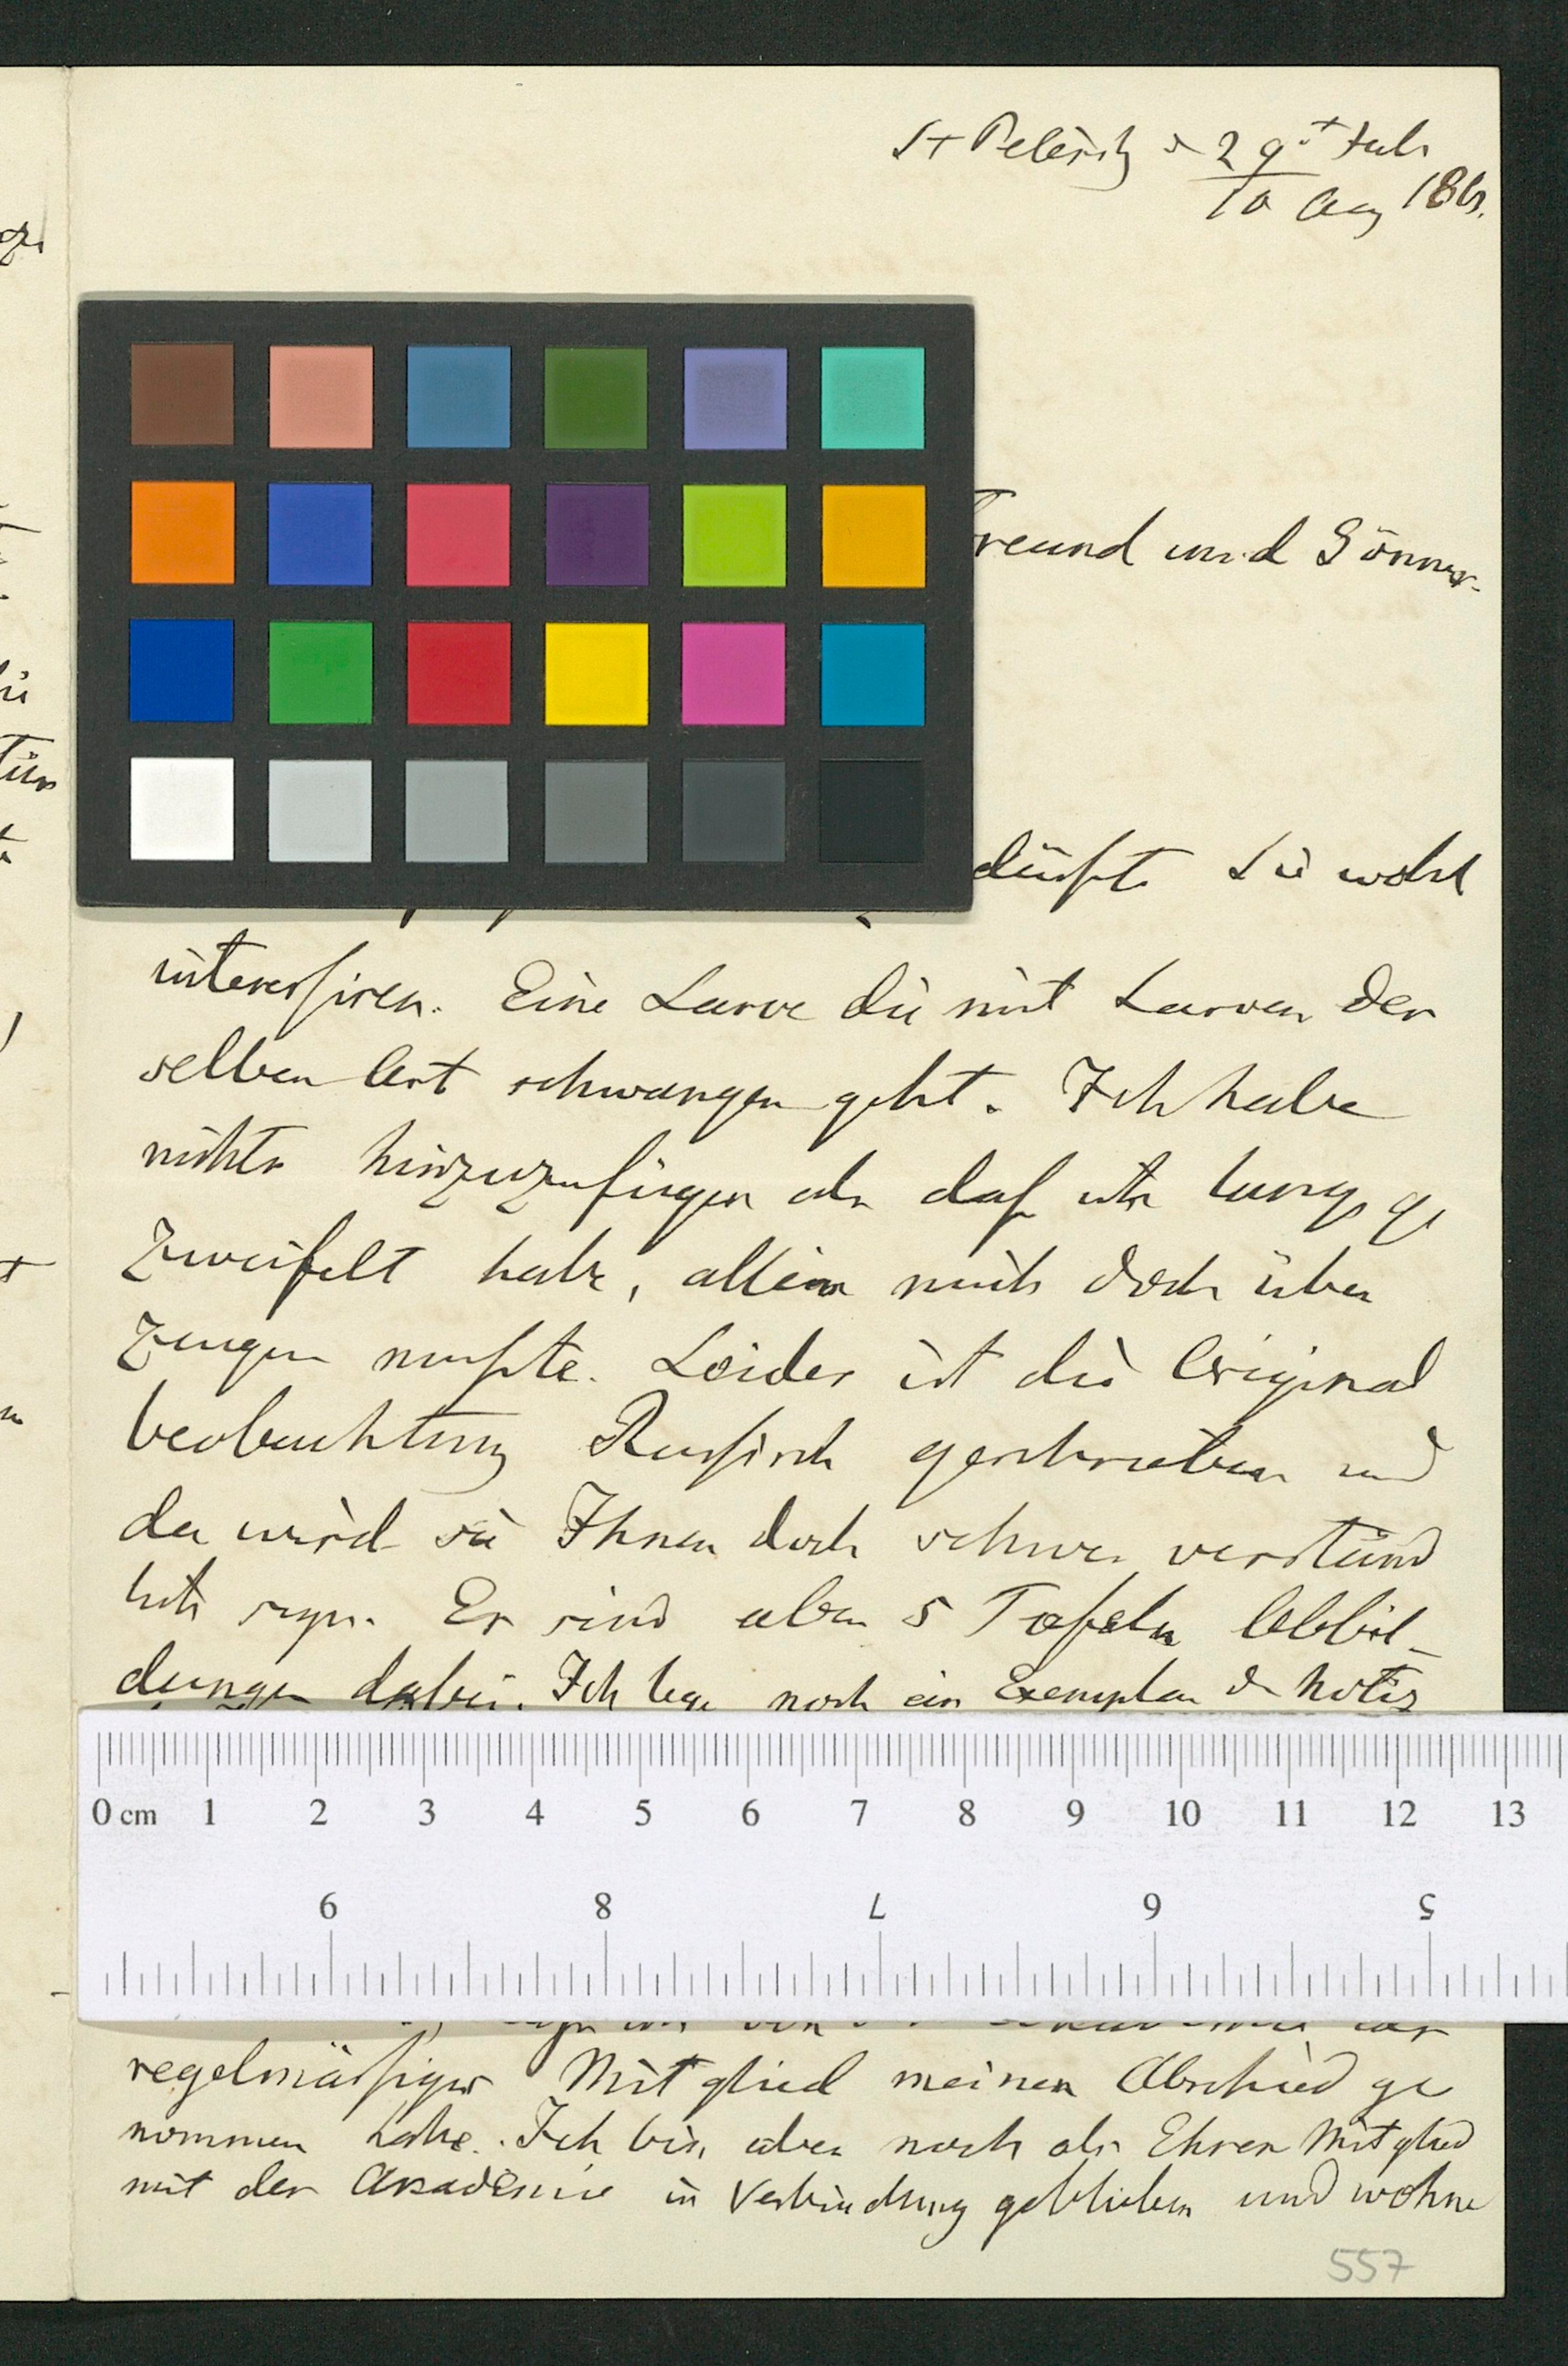 St Petersb d 29st Juli
10 Aug 186
Freund und Gönner.
dürfte Sie wohl
interessiren. Eine Larve die mit Larven der
selben Art schwanger geht. Ich habe
nichts hinzuzufügen als daß ich lang ge
zweifelt habe, allein mich doch über
zeugen mußte. Leider ist die Original
beobachtung Russisch geschrieben und
da wird sie Ihnen doch schwer verständ
lich seyn. Es sind aber 5 Tafeln Abbil-
dungen dabei. Ich lege noch ein Exemplar d Notiz
0 cm 1 2 3 4 5 6 7 8 9 10 11 12 13
9 8 7 6 5
regelmäßiges Mitglied meinen Abschied ge
nommen habe. Ich bin aber noch als Ehren Mitglied
mit der Akademie in Verbindung geblieben und wohne
557